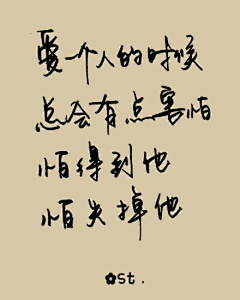 爱一个人的时候
总会有点害怕
怕得到他
怕失掉他
✿st.